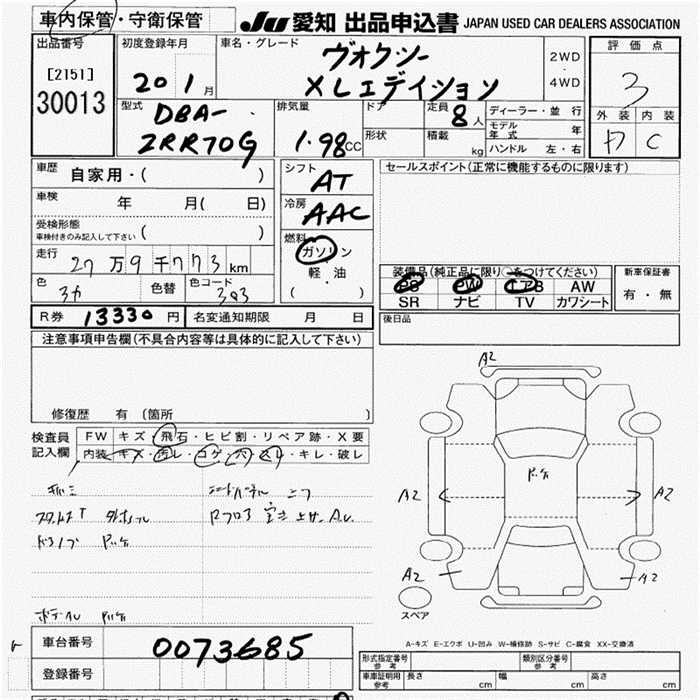 車内保管・守衛保管
JU 愛知 出品申込書 JAPAN USED CAR DEALERS ASSOCIATION
出品番号
[2151]
30013
初度登録年月
201 月
車名・グレード
ヴォクシー
XLエディション
2WD
・
4WD
評価点
3
外装 内装
C
型式
DBA-
ZRR70G
排気量
1.98 CC
ドア
形状
定員
8人
積載
kg
ディーラー・並行
モデル年式 年
ハンドル 左・右
車歴
自家用・( )
車検
年 月( 日)
受検形態
車検付きのみ記入して下さい ( )
走行
27万9千773km
色
色替
色コード
303
シフト
AT
冷房
AAC
燃料
ガソリン
軽・油
( )
セールスポイント(正常に機能するものに限ります)
装備品(純正品に限り○をつけてください)
PS PW エアB AW
SR ナビ TV カワシート
新車保証書
有・無
R券 13330円
名変通知期限 月 日
後日品
注意事項申告欄(不具合内容等は具体的に記入して下さい)
修復歴 有(箇所 )
検査員
記入欄
FW キズ・飛石・ヒビ割・リペア跡・X要
内装 キズ・汚レ・コゲ・穴・スレ・キレ・破レ
A2
A2
A2
A2
A2
スペア
A-キズ E-エクボ U-凹み W-補修跡 S-サビ C-腐食 XX-交換済
車台番号
0073685
登録番号
形式指定番号
参考
類別区分番号
参考
車庫証明用
参考
長さ cm
幅 cm
高さ cm